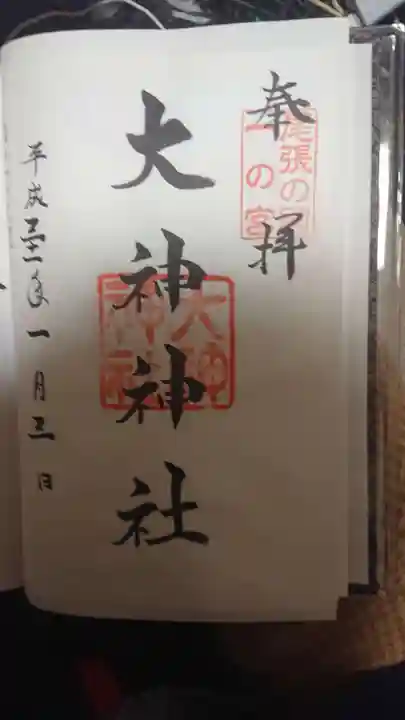 奉拝
尾張の国
一の宮
大神神社
大神
神社
平成三十一年一月三日